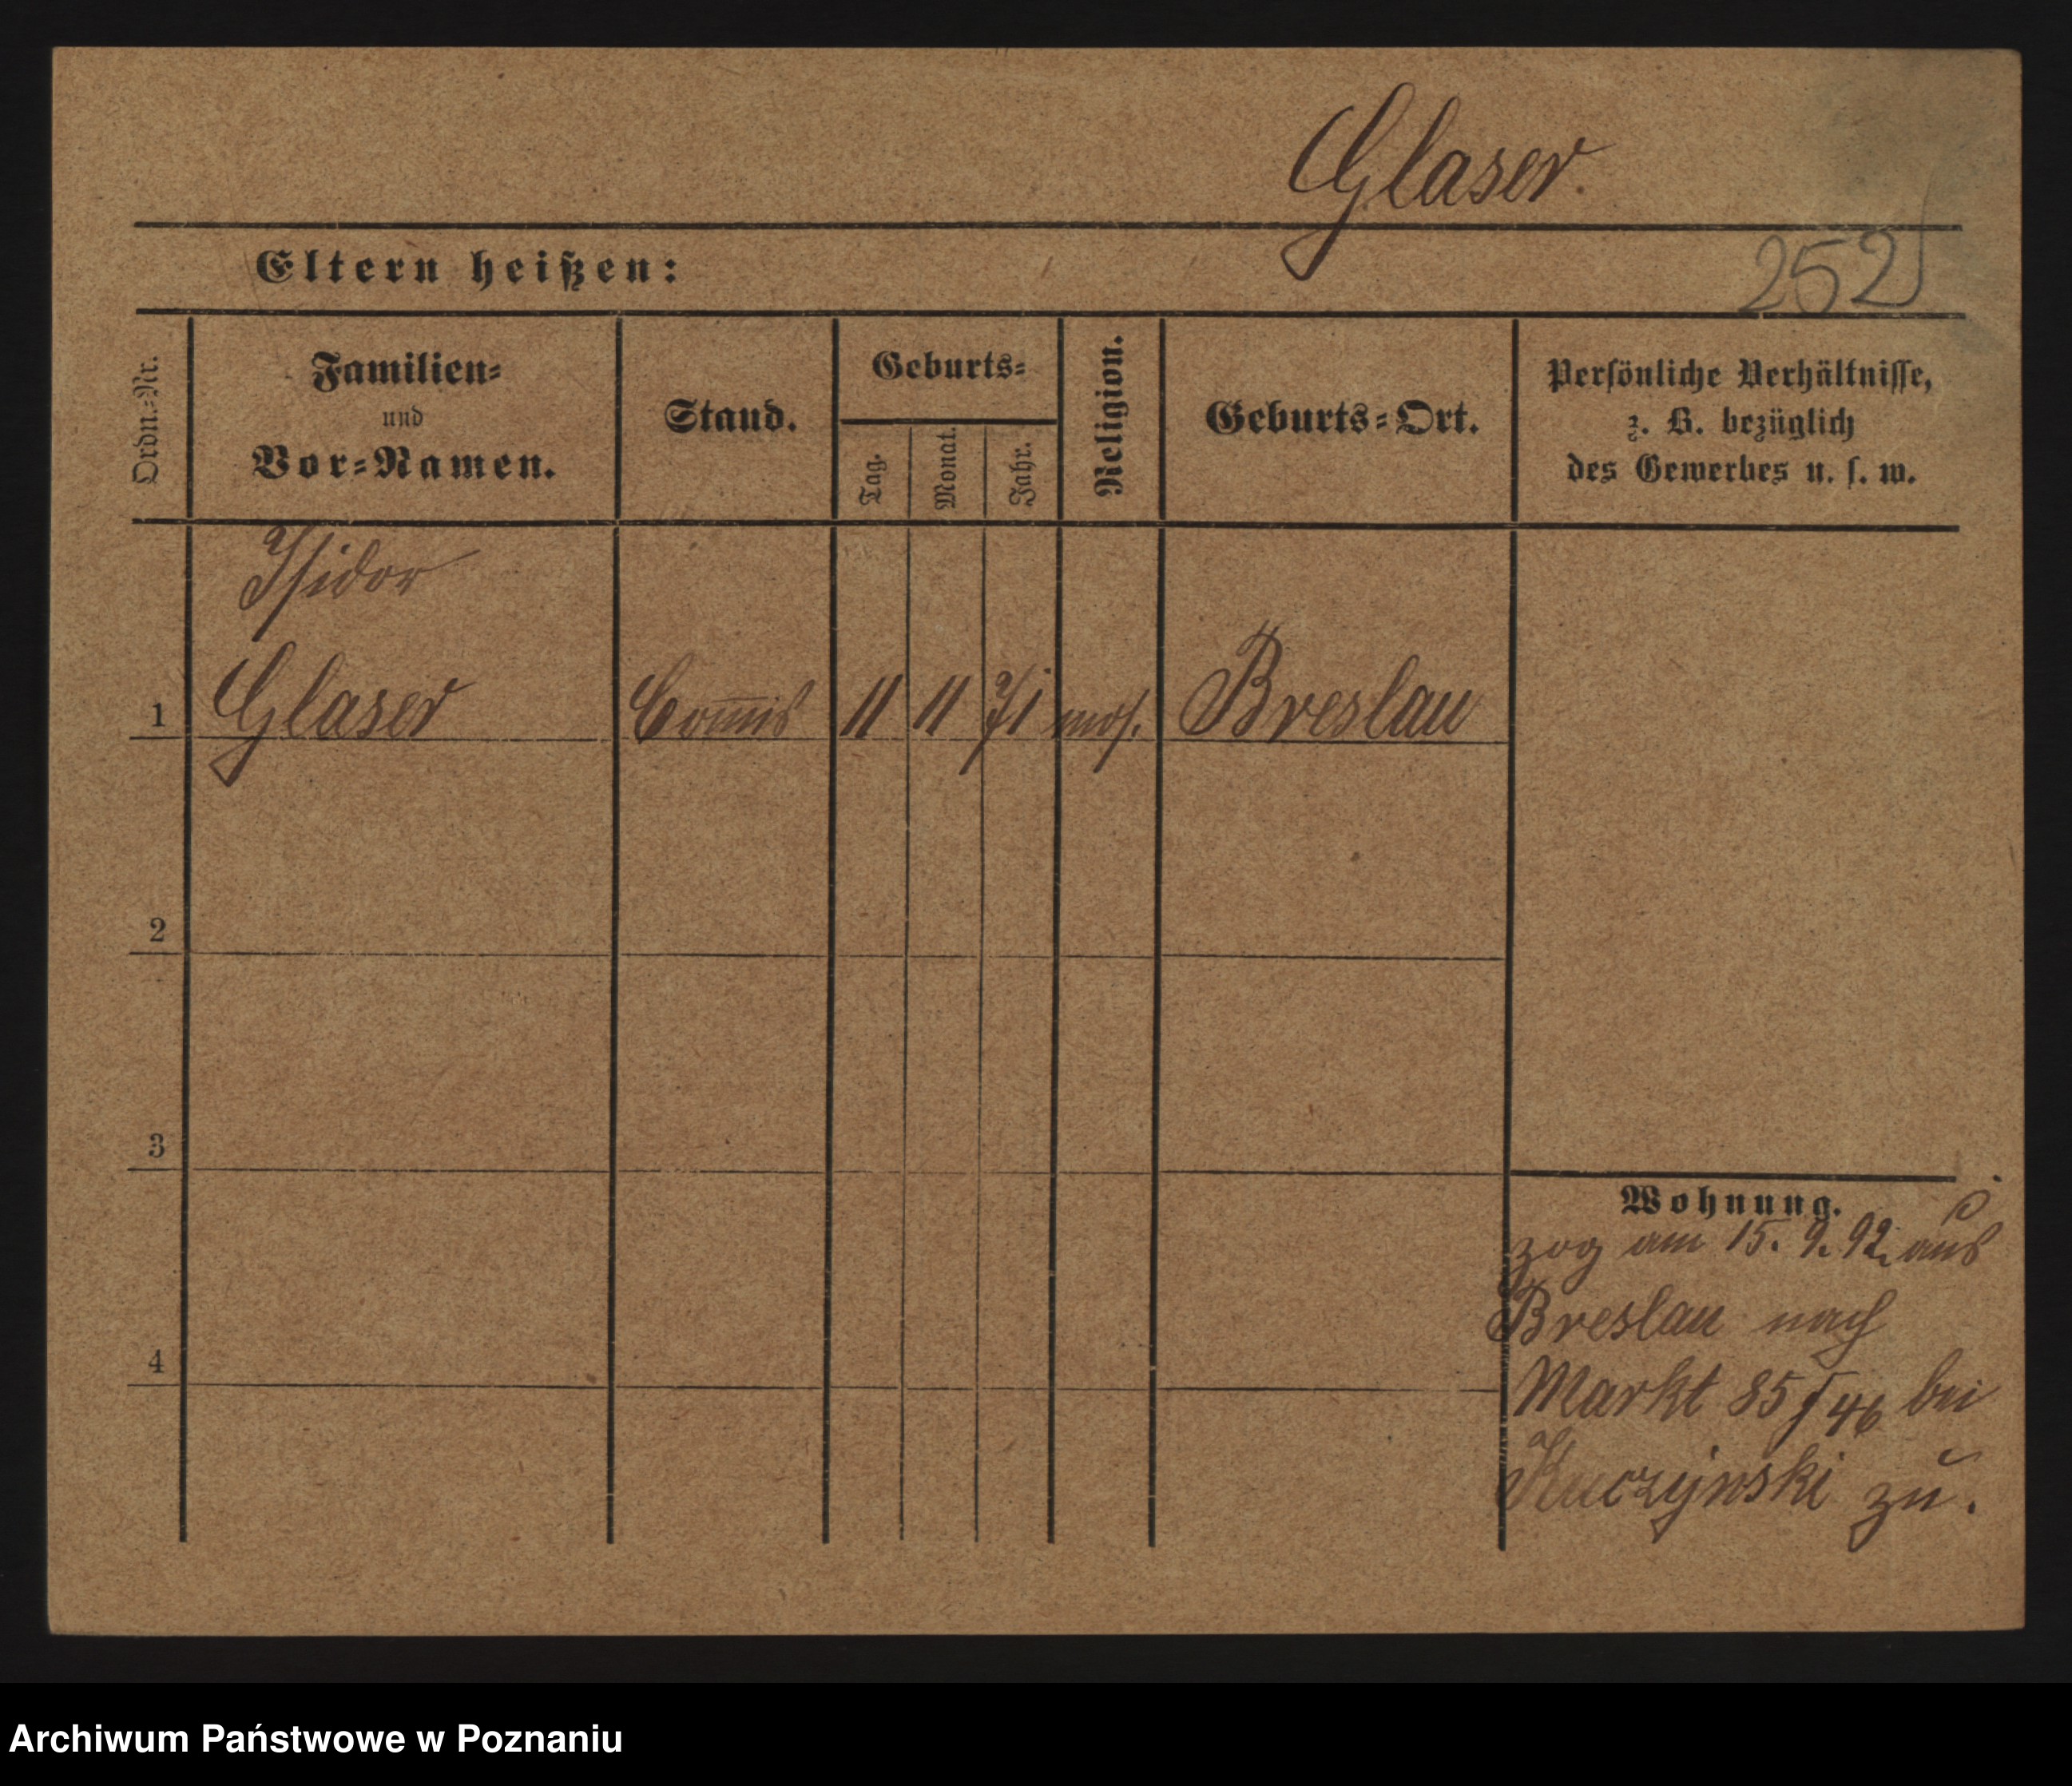 Glaser.
Eltern heißen:
252
Ordn.-Nr.
Familien-
und
Vor-Namen.
Stand.
Geburts-
Tag.
Monat.
Jahr.
Religion.
Geburts-Ort.
Persönliche Verhältnisse,
z. B. bezüglich
des Gewerbes u. s. w.
Isidor
1 Glaser Com̅is 11 11 71 mos. Breslau
2
3
4
Wohnung.
zog am 15. 9. 92 aus
Breslau nach
Markt 85/46 bei
Kuczynski zu.
Archiwum Państwowe w Poznaniu